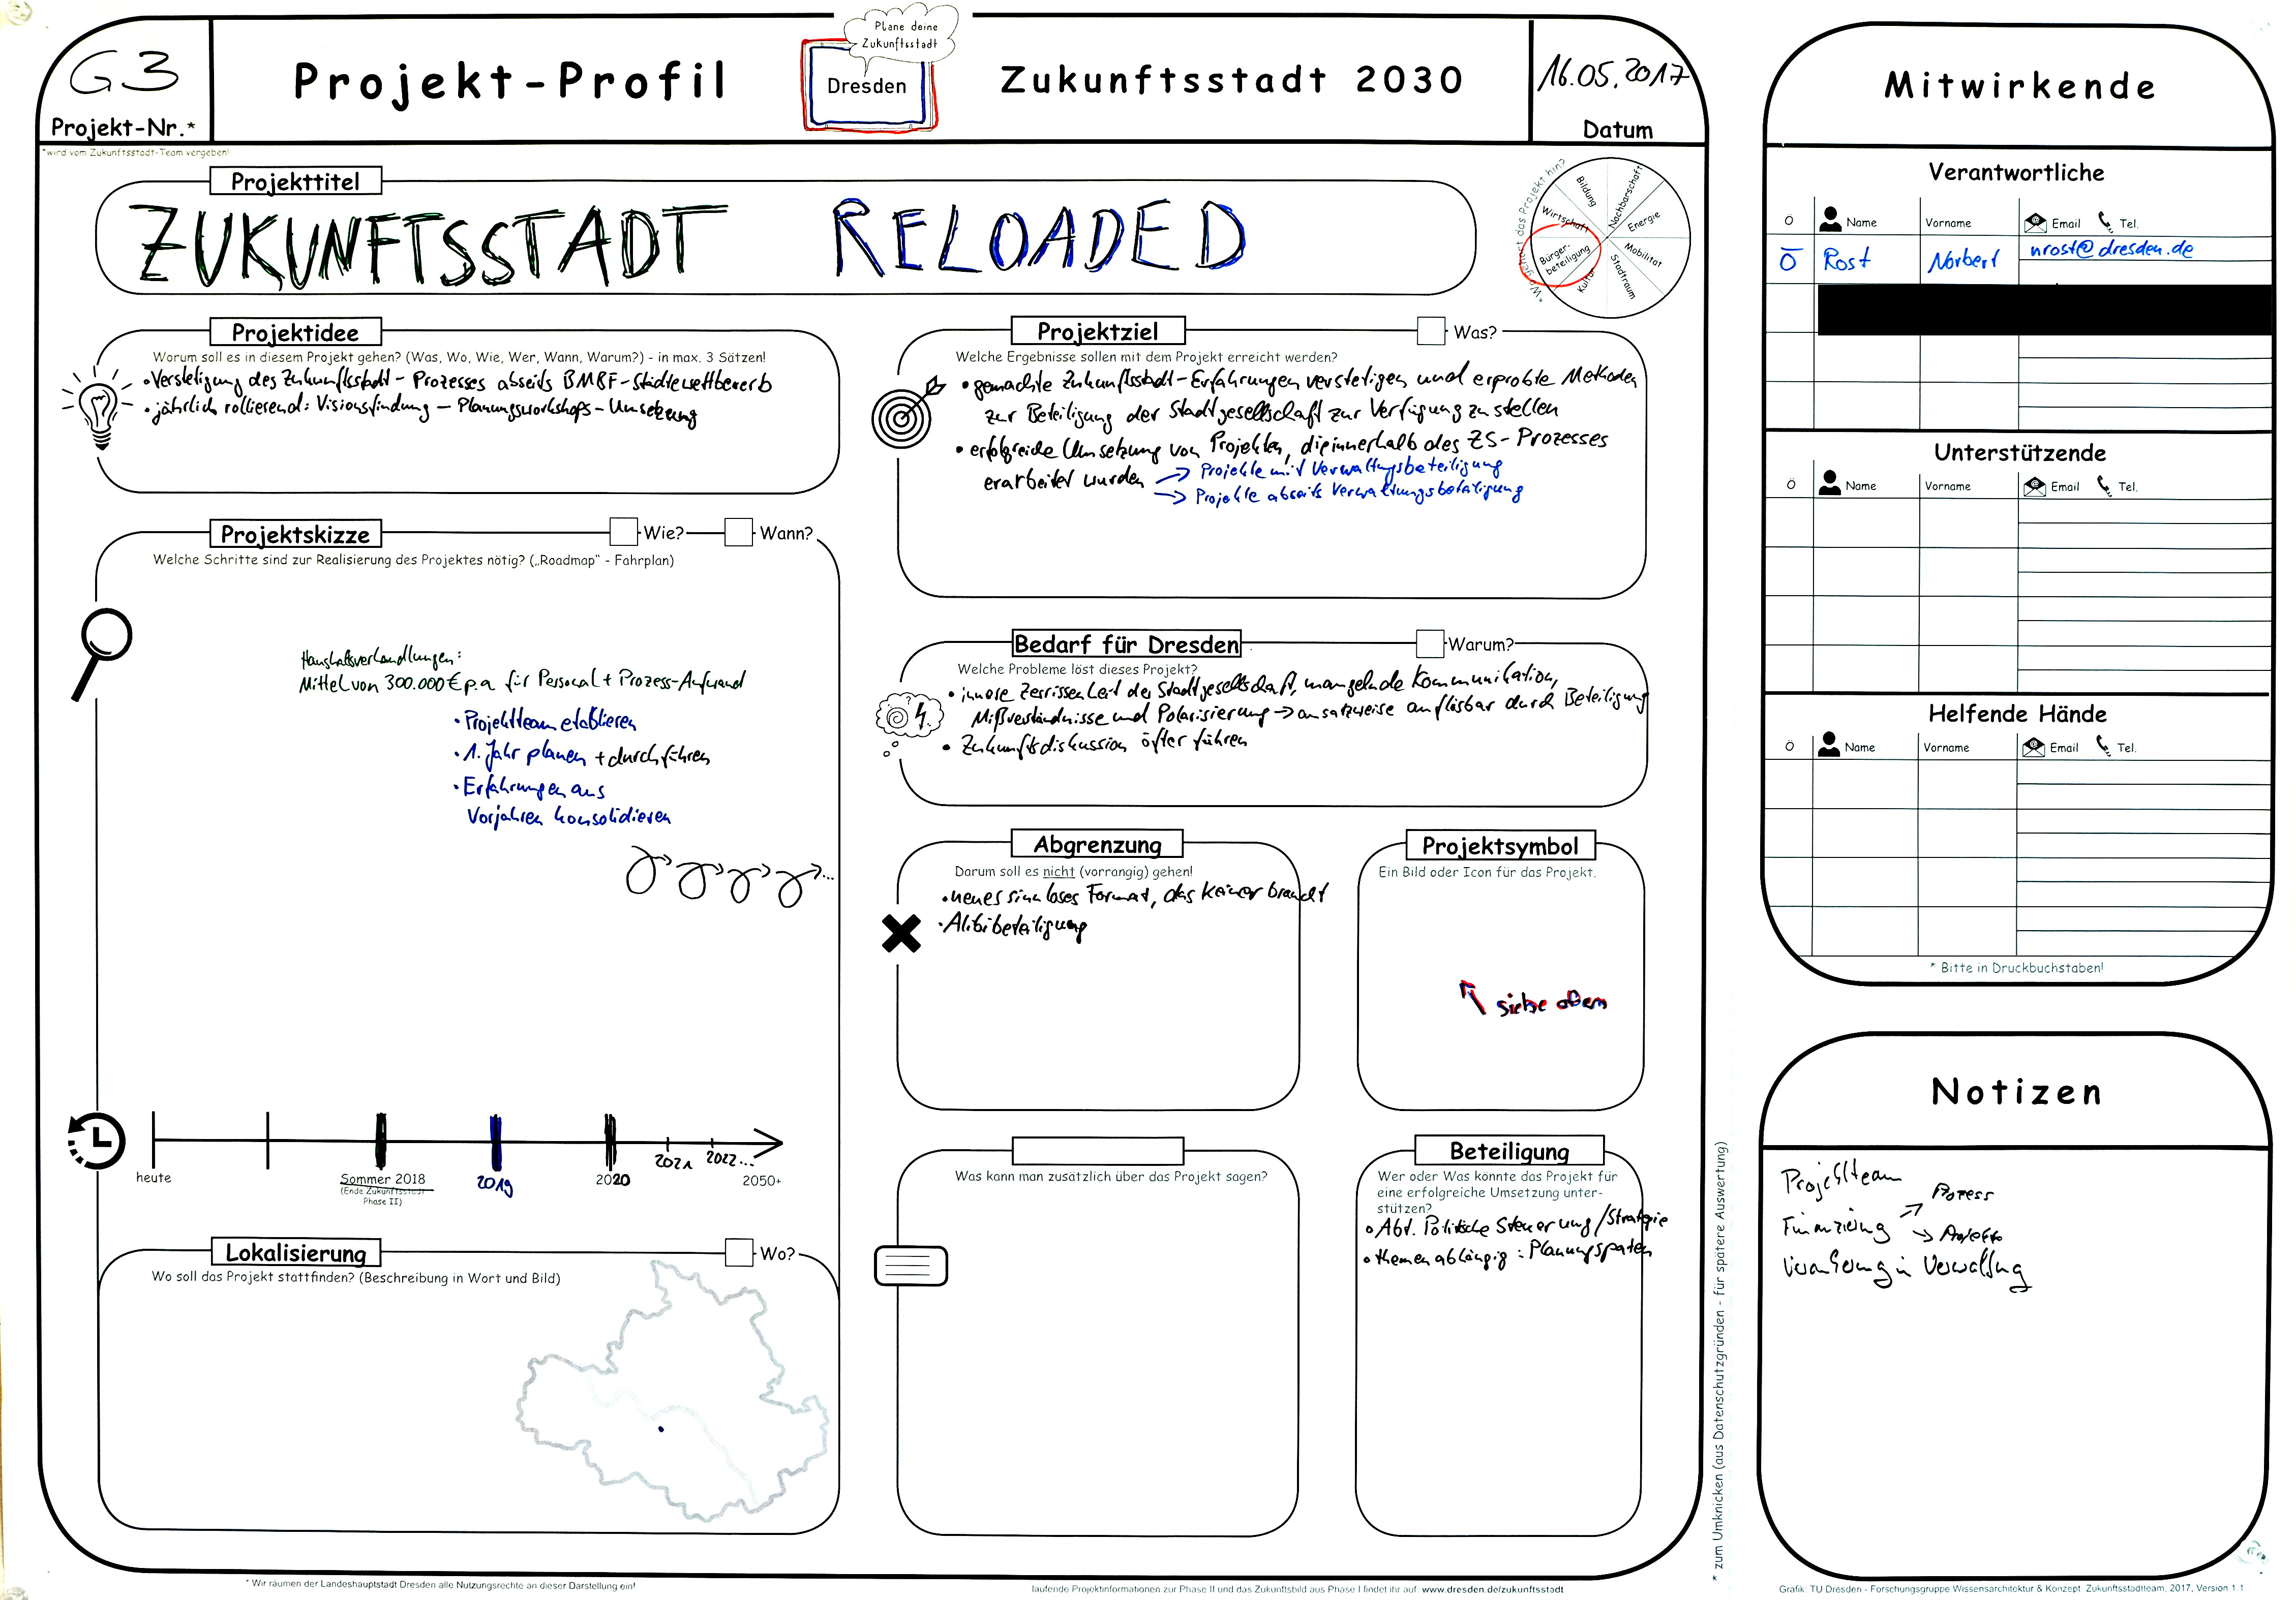 G3
Projekt-Nr.*
*wird vom Zukunftsstadt-Team vergeben!
Projekt-Profil
Plane deine
Zukunftsstadt
Dresden
Zukunftsstadt 2030
16.05.2017
Datum
Projekttitel
ZUKUNFTSSTADT RELOADED
* Wo gehört das Projekt hin?
Bildung
Nachbarschaft
Energie
Mobilität
Stadtraum
Kultur
Bürger-
beteiligung
Wirtschaft
Projektidee
Worum soll es in diesem Projekt gehen? (Was, Wo, Wie, Wer, Wann, Warum?) - in max. 3 Sätzen!
• Verstetigung des Zukunftsstadt-Prozesses abseits BMBF-Städtewettbewerb
• jährlich rollierend: Visionsfindung – Planungsworkshops – Umsetzung
Projektskizze
Wie?
Wann?
Welche Schritte sind zur Realisierung des Projektes nötig? („Roadmap“ - Fahrplan)
Haushaltsverhandlungen:
Mittel von 300.000 € p.a für Personal + Prozess-Aufwand
• Projektteam etablieren
• 1. Jahr planen + durchführen
• Erfahrungen aus
Vorjahren konsolidieren
...
heute
Sommer 2018
(Ende Zukunftsstadt
Phase II)
2019
2020
2021
2022...
2050+
Lokalisierung
Wo?
Wo soll das Projekt stattfinden? (Beschreibung in Wort und Bild)
Projektziel
Was?
Welche Ergebnisse sollen mit dem Projekt erreicht werden?
• gemachte Zukunftsstadt-Erfahrungen verstetigen und erprobte Methoden
zur Beteiligung der Stadtgesellschaft zur Verfügung zu stellen
• erfolgreiche Umsetzung von Projekten, die innerhalb des ZS-Prozesses
erarbeitet wurden → Projekte mit Verwaltungsbeteiligung
→ Projekte abseits Verwaltungsbeteiligung
Bedarf für Dresden
Warum?
Welche Probleme löst dieses Projekt?
• innere Zerrissenheit der Stadtgesellschaft, mangelnde Kommunikation,
Mißverständnisse und Polarisierung → ansatzweise auflösbar durch Beteiligung
• Zukunftsdiskussion öfter führen
Abgrenzung
Darum soll es nicht (vorrangig) gehen!
• neues sinnloses Format, das keiner braucht
• Alibibeteiligung
Projektsymbol
Ein Bild oder Icon für das Projekt.
siehe oben
Was kann man zusätzlich über das Projekt sagen?
Beteiligung
Wer oder Was könnte das Projekt für
eine erfolgreiche Umsetzung unter-
stützen?
• Abt. Politische Steuerung/Strategie
• themenabhängig: Planungspaten
* Wir räumen der Landeshauptstadt Dresden alle Nutzungsrechte an dieser Darstellung ein!
laufende Projektinformationen zur Phase II und das Zukunftsbild aus Phase I findet ihr auf www.dresden.de/zukunftsstadt
* zum Umknicken (aus Datenschutzgründen - für spätere Auswertung)
Mitwirkende
Verantwortliche
Ö Name Vorname Email Tel.
Ö Rost Norbert nrost@dresden.de
Unterstützende
Ö Name Vorname Email Tel.
Helfende Hände
Ö Name Vorname Email Tel.
* Bitte in Druckbuchstaben!
Notizen
Projektteam
Finanzierung → Prozess
→ Projekte
Verankerung in Verwaltung
Grafik: TU Dresden - Forschungsgruppe Wissensarchitektur & Konzept: Zukunftsstadtteam, 2017, Version 1.1